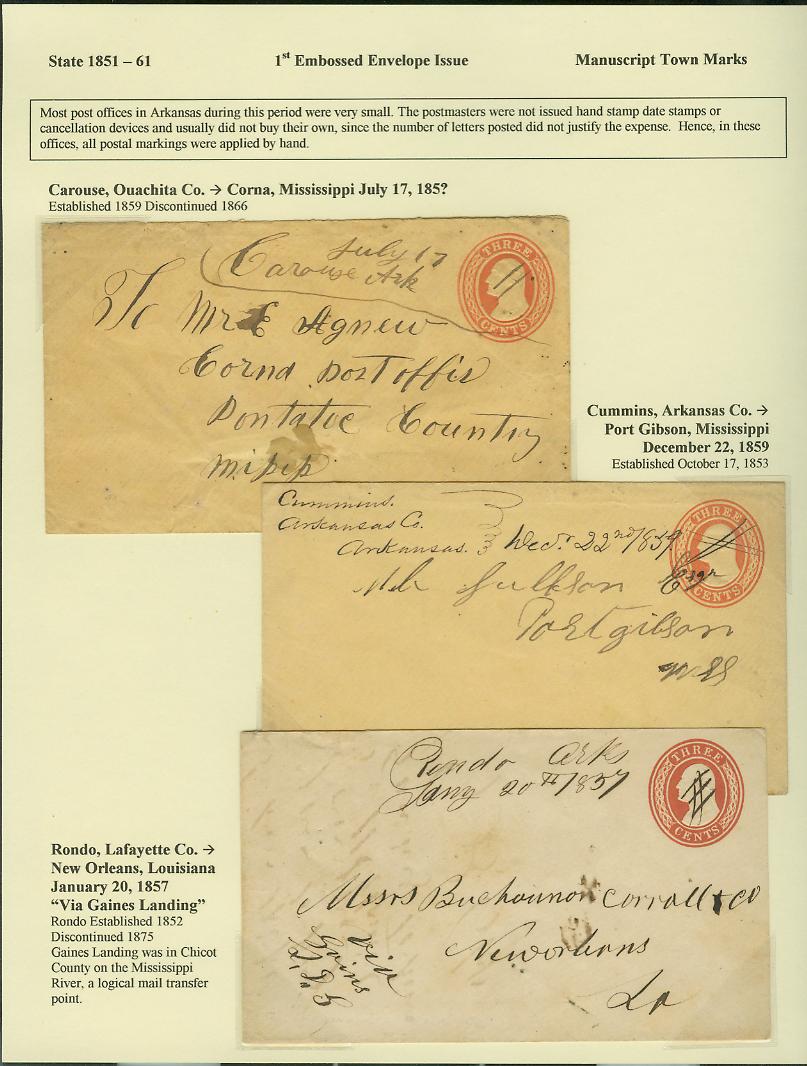 State 1851 – 61 1st Embossed Envelope Issue Manuscript Town Marks
Most post offices in Arkansas during this period were very small. The postmasters were not issued hand stamp date stamps or
cancellation devices and usually did not buy their own, since the number of letters posted did not justify the expense. Hence, in these
offices, all postal markings were applied by hand.
Carouse, Ouachita Co. → Corna, Mississippi July 17, 185?
Established 1859 Discontinued 1866
July 17
Carouse Ark
THREE
CENTS
To Mr E Agnew
Corna post offis
Pontatoc Country
Missip
Cummins, Arkansas Co. →
Port Gibson, Mississippi
December 22, 1859
Established October 17, 1853
Cummins.
Arkansas Co.
Arkansas. Decr 22nd 1859
THREE
CENTS
Esqr
Portgibson
Miss
Rondo, Lafayette Co. →
New Orleans, Louisiana
January 20, 1857
“Via Gaines Landing”
Rondo Established 1852
Discontinued 1875
Gaines Landing was in Chicot
County on the Mississippi
River, a logical mail transfer
point.
Rondo Arks
Jany 20th 1857
THREE
CENTS
Messrs Buchannon Corrall & Co
Neworleans
La
Via
Gains